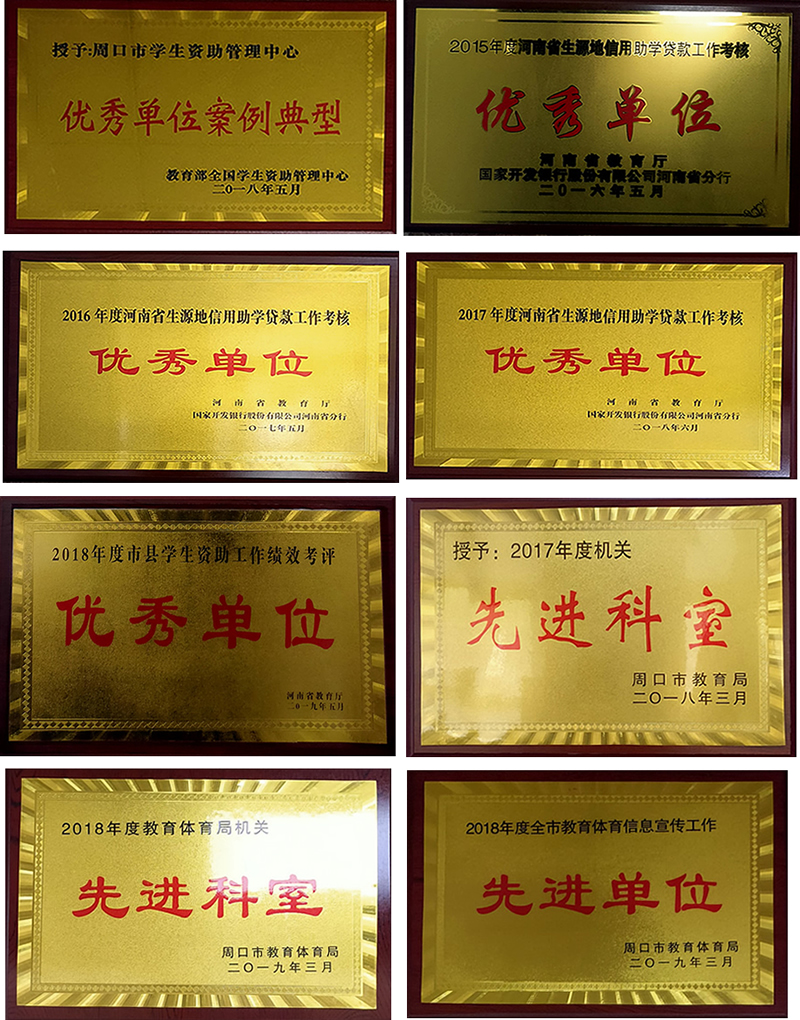 授予:周口市学生资助管理中心
优秀单位案例典型
教育部全国学生资助管理中心
二〇一八年五月
2015年度河南省生源地信用助学贷款工作考核
优秀单位
河南省教育厅
国家开发银行股份有限公司河南省分行
二〇一六年五月
2016年度河南省生源地信用助学贷款工作考核
优秀单位
河南省教育厅
国家开发银行股份有限公司河南省分行
二〇一七年五月
2017年度河南省生源地信用助学贷款工作考核
优秀单位
河南省教育厅
国家开发银行股份有限公司河南省分行
二〇一八年六月
2018年度市县学生资助工作绩效考评
优秀单位
河南省教育厅
二〇一九年五月
授予：2017年度机关
先进科室
周口市教育局
二〇一八年三月
2018年度教育体育局机关
先进科室
周口市教育体育局
二〇一九年三月
2018年度全市教育体育信息宣传工作
先进单位
周口市教育体育局
二〇一九年三月